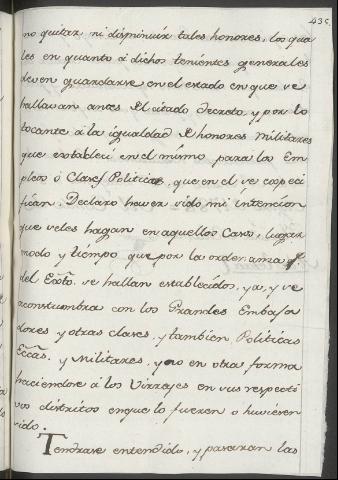 435
no quitar, ni disminuir tales honores, los qua
les en quanto à dichos tenientes generales
deven guardarse en el estado en que se
hallavan antes del citado decreto, y por lo
tocante à la igualdad de honores militares
que establecì en el mismo para los Em
pleos ò Clases Politicas, que en el se especi
fican. Declaro haver sido mi intencion
que seles hagan en aquellos Casos, lugar
modo y tiempo que por la ordenanza
del Exto. se hallan establecidos, ya, y se
acostumbra con los Grandes Embaxa
dores y otras clases, y tambien Politicas
Eccas. y Militares, y no en otra forma
haciendose à los Virreyes en sus respecti
vos distritos en que lo fueren o huvieren
sido.
Tendrase entendido, y pasaran las